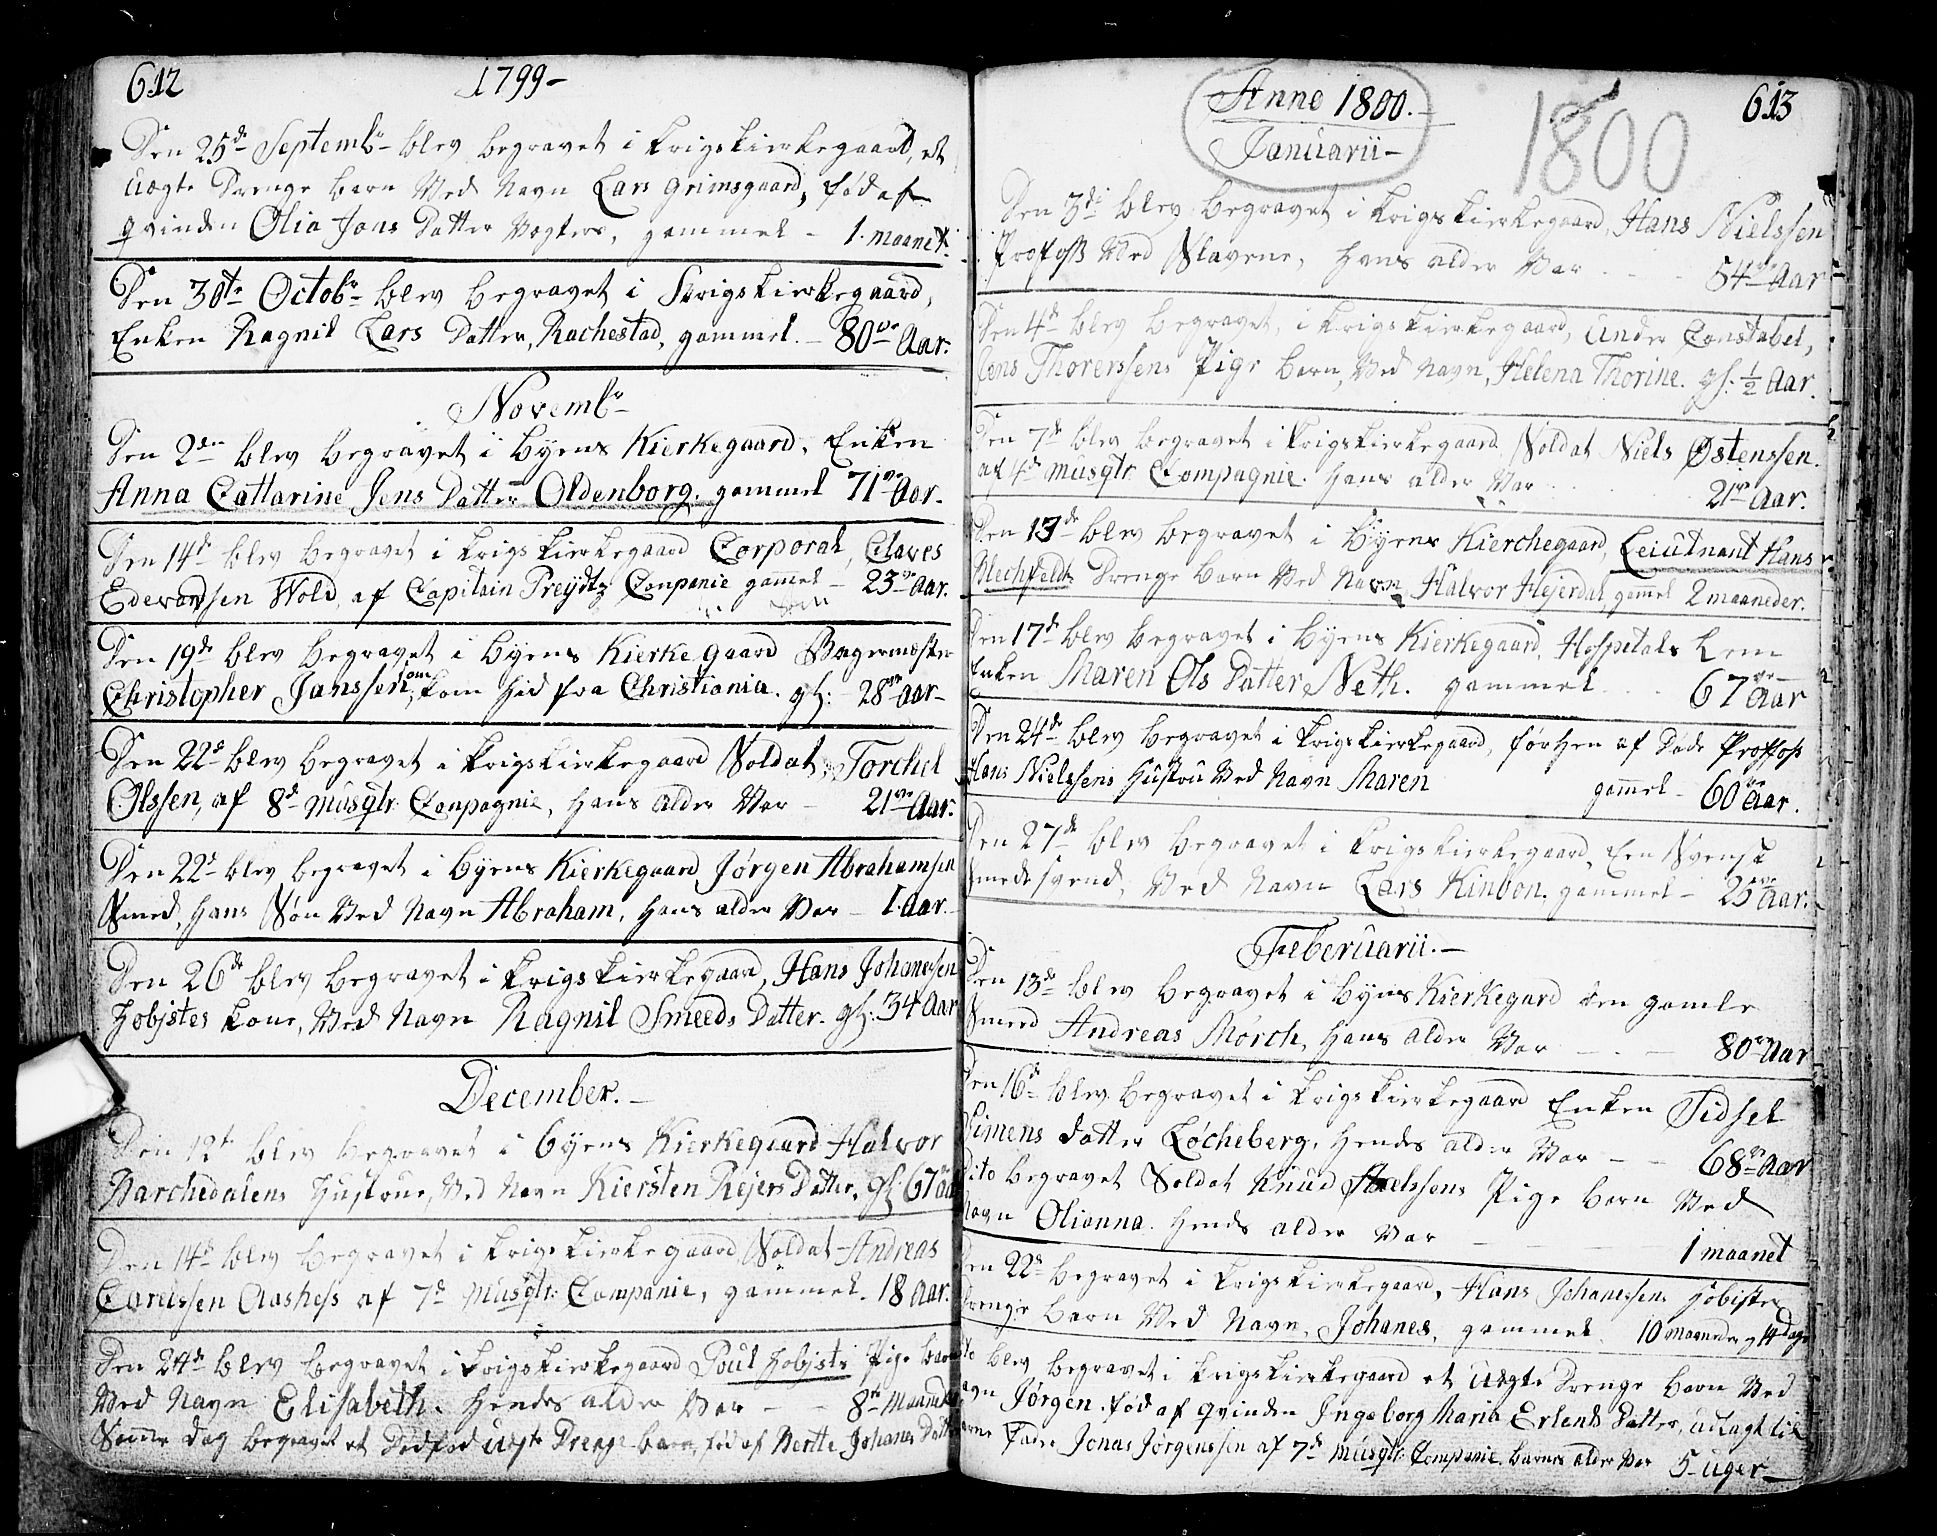 612 1799-
Den 25de Septembr blev begravet i krigskierkegaard, et
uægte Drenge barn Ved Navn Lars Grimsgaard, fød af
qvinden Olia Jons Datter Vogters, gammel - 1. maanet.
Den 30te Octobr blev begravet i Krigskierkegaard,
Enken Ragnil Lars Datter, Rachestad, gammel - 80ve Aar.
Novembr
Den 2den blev begravet i byens Kierkegaard, Enken
Anna Cattarine Jens Datter Oldenborg. gammel 71ve Aar.
Den 14de blev begravet i krigskierkegaard Corporal, Claves
Edevardsen Wold, af Capitain Preydtz Companie gammel - 23ve Aar.
Den 19de blev begravet i byens Kierkegaard Bagermester
Christopher Janssen, som kom hid fra Christiania. gl: 28ve Aar-
Den 22de blev begravet i krigskierkegaard Soldat, Torchel
Olssen, af 8de musqtr: Compagnie, hans alder Var - 21ve Aar.
Den 22de blev begravet i byens Kierkegaard, Jørgen Abrahamsen
Smed, hans Søn Ved Navn Abraham, hans alder Var - 1. Aar.
Den 26de blev begravet i krigskierkegaard, Hans Johanessen
Hobistes kone, Ved Navn Ragnil Smeeds Datter. gl: 34 Aar
December.-
Den 12te blev begravet i byens Kierkegaard Halvor
Barchedalens Hustrue, Ved Navn Kiersten Rejers Datter, gl: 67
Den 14de blev begravet i krigskierkegaard, Soldat Andreas
Carelssen Aashess af 7de musqtr: Companie, gammel. 18 Aar.
Den 24de blev begravet i krigskierkegaard Poul Hobists Pige barn
Ved Navn Elisabeth. Hendes alder Var - - 8te Maaneder
Samme dag begravet et Dødfød uegte Drenge barn, fød af Bertte Johanes Datter
Anno 1800.- 1800 613
Januarii-
Den 3die blev begravet i krigskierkegaard, Hans Nielssen
Profoss Ved Slavene, hans alder Var - - - 54ve Aar
Den 4de blev begravet i krigskierkegaard, under Constabel,
Jens Thorerssens Pige barn, Ved Navn, Helena Thorine. gl: 1/2 Aar.
Den 7de blev begravet i krigskierkegaard, Soldat Niels Østenssen.
af 4de musqtr Compagnie. hans alder Var 21ve Aar.
Den 13de blev begravet i byens Kierchegaard, Leiutnant Hans
Blechfeldts Drenge barn Ved Navn, Halvor Hejerdal, gammel 2 maaneder.
Den 17de blev begravet i byens Kierkegaard, Hospitals Lem
Enken Maren Ols Datter Neth. gammel - 67ve Aar
Den 24de blev begravet i krigskierkegaard, forhen af døde Proffoss
Hans Nielssens Hustru Ved Navn Maren gammel - 60ve Aar.
Den 27de blev begravet i krigskierkegaard, Een Svensk
smedesvend, Ved Navn Lars Kinbon. gammel - 25ve Aar.
Feberuarii.-
Den 13de blev begravet i byns Kierkegard den gamle
Smed Andreas Mørch, hans alder Var - . - 80ve Aar
Den 16de blev begravet i krigskierkegaard Enken Sidsel
Simens datter Løcheberg, hendes alder Var - - 68ve Aar
Dito begravet Soldat Knud Axelssens Pige barn Ved
Navn Olianna. Hends alder Var - - - 1 maanet
Den 22de begravet i krigskierkegaard, Hans Johanessens Hobistes
Drenge barn Ved Navn, Johanes, gammel. 10 maaneder og 14 dage
Dito blev begravet i krigskierkegaard et uegte Drenge barn Ved
Navn Jørgen. fød af qvinden Ingeborg Maria Erlends Datter, udlagt til
barne Fader Jonas Jørgenssen af 7de musqtr: Companie. barnes alder Var 5 uger-